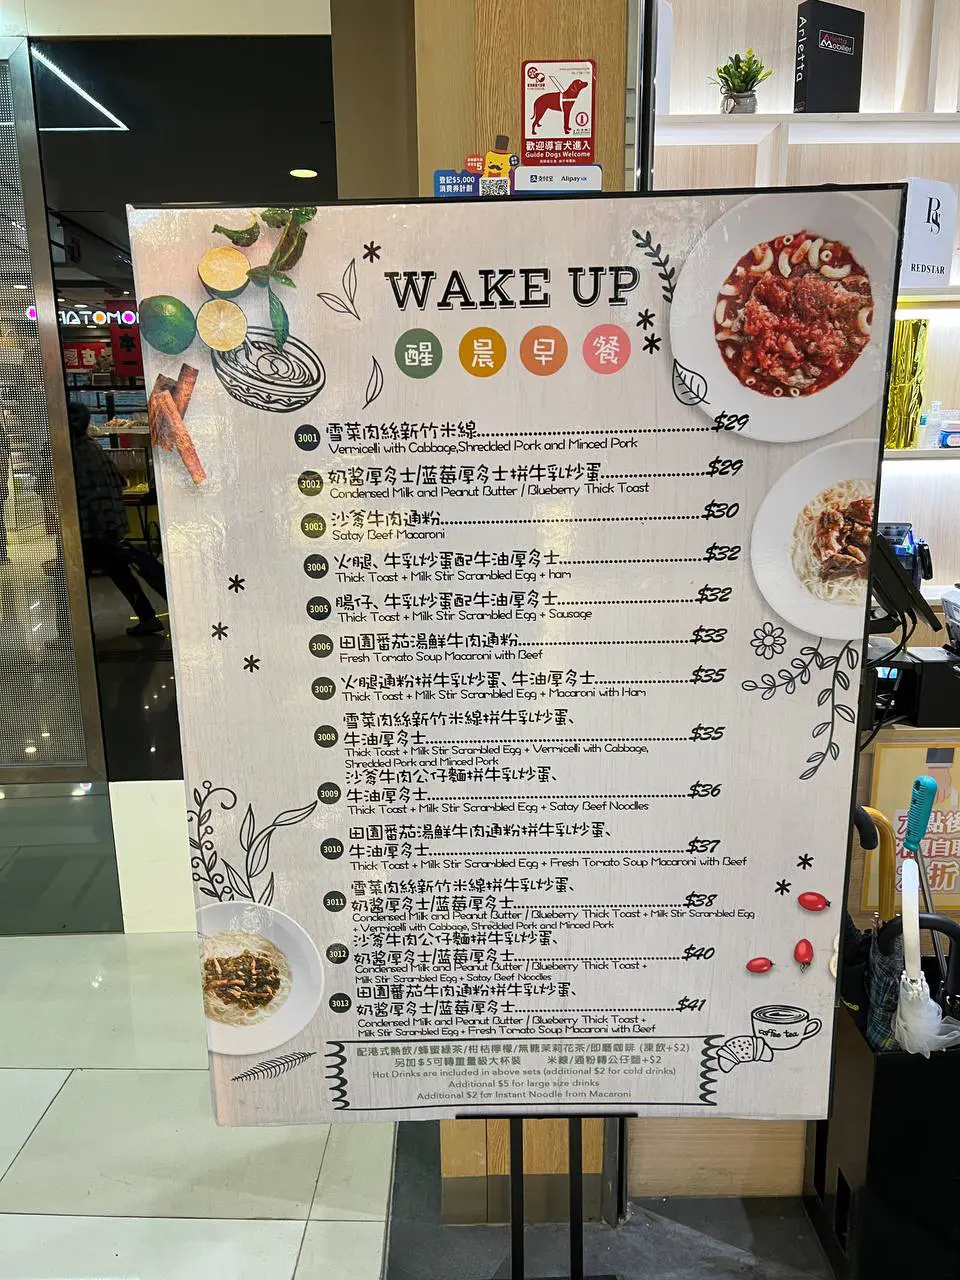 Arletta
Arletta
Mobilier
歡迎導盲犬進入
Guide Dogs Welcome
登記$5,000
消費券計劃
支付宝 Alipay HK
RS
REDSTAR
WAKE UP
醒晨早餐
3001 雪菜肉絲新竹米線 $29
Vermicelli with Cabbage,Shredded Pork and Minced Pork
3002 奶醬厚多士/藍莓厚多士拼牛乳炒蛋 $29
Condensed Milk and Peanut Butter / Blueberry Thick Toast
3003 沙爹牛肉通粉 $30
Satay Beef Macaroni
3004 火腿、牛乳炒蛋配牛油厚多士 $32
Thick Toast + Milk Stir Scrambled Egg + ham
3005 腸仔、牛乳炒蛋配牛油厚多士 $32
Thick Toast + Milk Stir Scrambled Egg + Sausage
3006 田園番茄湯鮮牛肉通粉 $33
Fresh Tomato Soup Macaroni with Beef
3007 火腿通粉拼牛乳炒蛋、牛油厚多士 $35
Thick Toast + Milk Stir Scrambled Egg + Macaroni with Ham
雪菜肉絲新竹米線拼牛乳炒蛋、
3008 牛油厚多士 $35
Thick Toast + Milk Stir Scrambled Egg + Vermicelli with Cabbage,
Shredded Pork and Minced Pork
沙爹牛肉公仔麵拼牛乳炒蛋、
3009 牛油厚多士 $36
Thick Toast + Milk Stir Scrambled Egg + Satay Beef Noodles
田園番茄湯鮮牛肉通粉拼牛乳炒蛋、
3010 牛油厚多士 $37
Thick Toast + Milk Stir Scrambled Egg + Fresh Tomato Soup Macaroni with Beef
雪菜肉絲新竹米線拼牛乳炒蛋、
3011 奶醬厚多士/藍莓厚多士 $38
Condensed Milk and Peanut Butter / Blueberry Thick Toast + Milk Stir Scrambled Egg
+ Vermicelli with Cabbage, Shredded Pork and Minced Pork
沙爹牛肉公仔麵拼牛乳炒蛋、
3012 奶醬厚多士/藍莓厚多士 $40
Condensed Milk and Peanut Butter / Blueberry Thick Toast +
Milk Stir Scrambled Egg + Satay Beef Noodles
田園蕃茄牛肉通粉拼牛乳炒蛋、
3013 奶醬厚多士/藍莓厚多士 $41
Condensed Milk and Peanut Butter / Blueberry Thick Toast +
Milk Stir Scrambled Egg + Fresh Tomato Soup Macaroni with Beef
coffee tea
配港式熱飲/蜂蜜綠茶/柑桔檸檬/無糖茉莉花茶/即磨咖啡 (凍飲+$2)
另加$5可轉重量級大杯裝 米線/通粉轉公仔麵+$2
Hot Drinks are included in above sets (additional $2 for cold drinks)
Additional $5 for large size drinks
Additional $2 for Instant Noodle from Macaroni